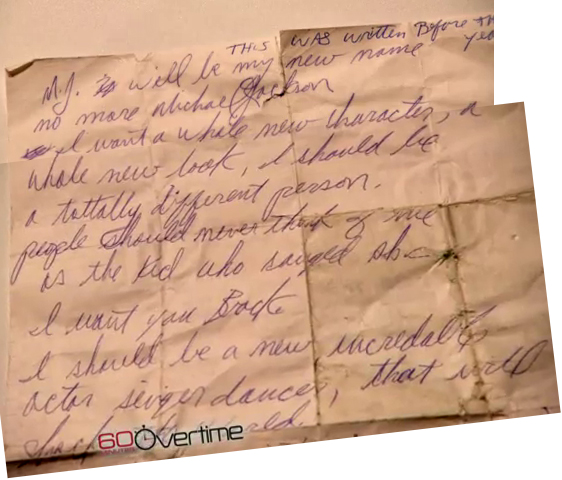 THIS WAS written Before the
yea
M.J. will be my new name
no more Michael Jackson
I want a whole new character, a
whole new look, I should be
a tottally different person.
people should never think of me
as the kid who sanged abc
I want you Back
I should be a new incredable
actor singer dancer, that will
60 Overtime
MINUTES